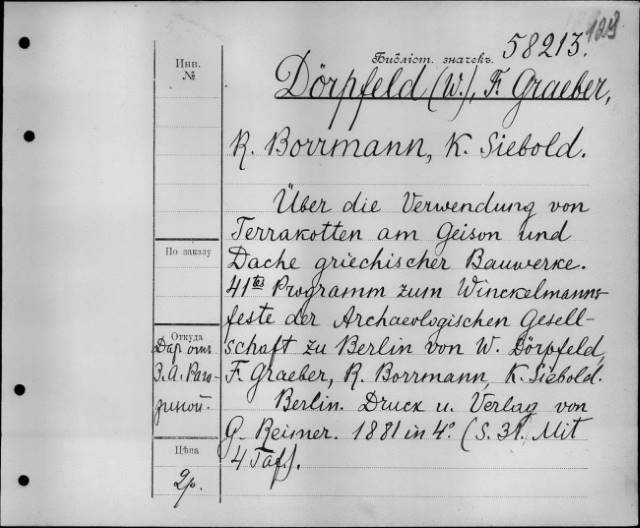 58213.
Инв.
№
Библіот. значекъ.
Dörpfeld (W.), F. Graeber,
R. Borrmann, K. Siebold.
Über die Verwendung von
Terrakotten am Geison und
Dache griechischer Bauwerke.
41tes Programm zum Winckelmanns-
feste der Archaeologischen Gesell-
schaft zu Berlin von W. Dörpfeld,
F. Graeber, R. Borrmann, K. Siebold.
Berlin. Druck u. Verlag von
G. Reimer. 1881 in 4° (S. 31. Mit
4 Taf.).
По заказу
Откуда
Даръ отъ
З. А. Раго-
зиной.
Цѣна
2 р.